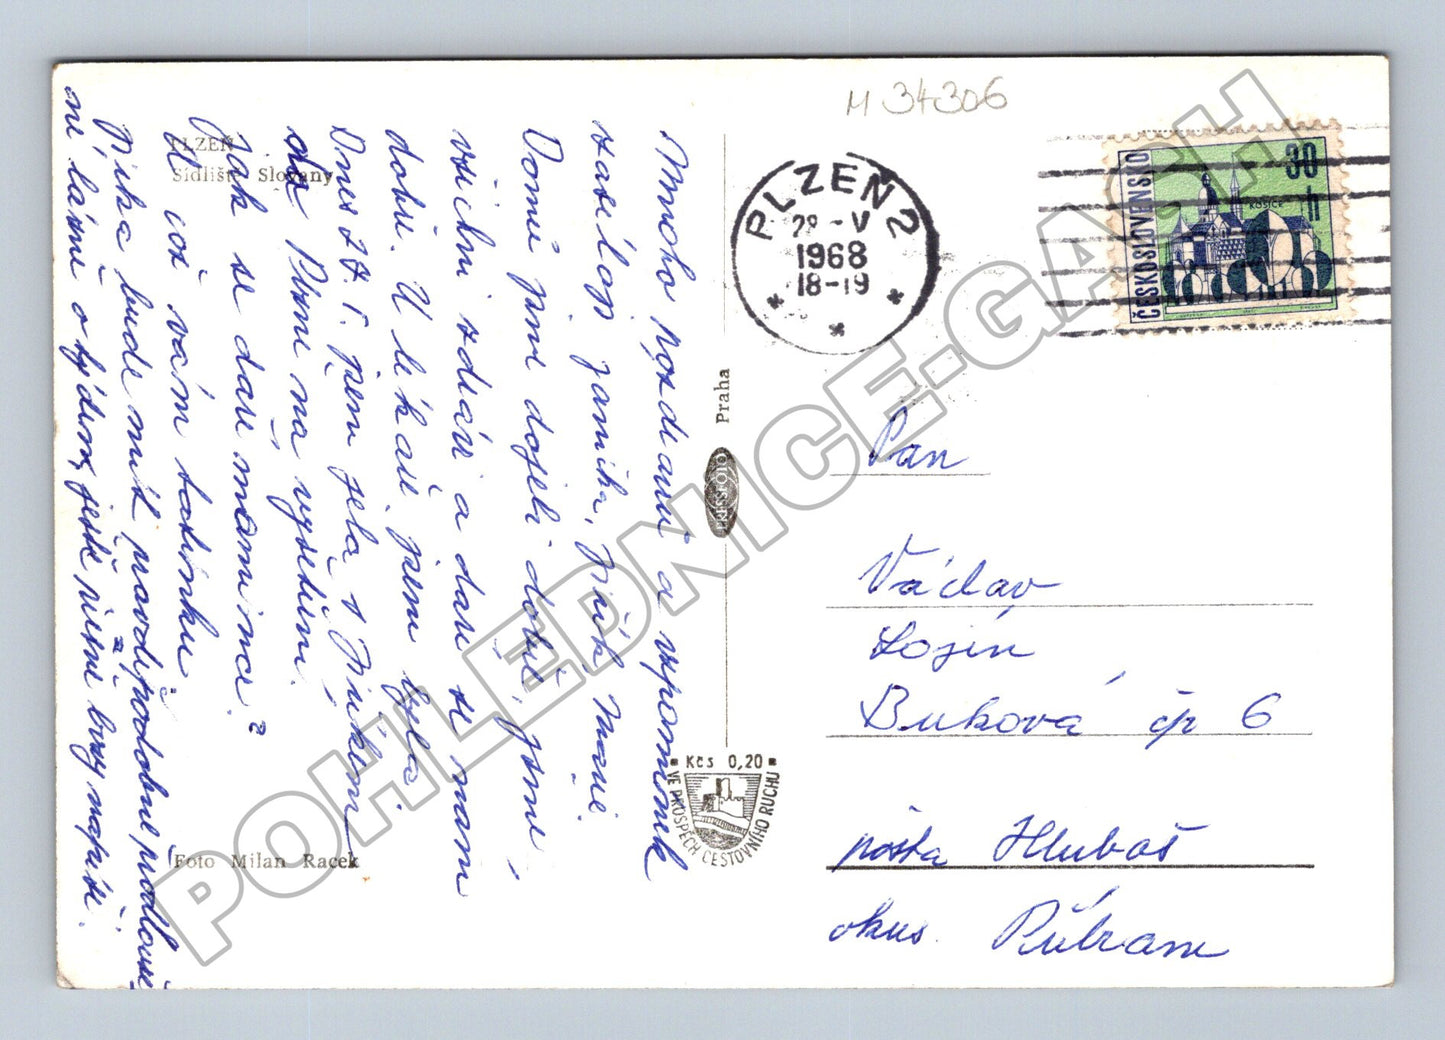 M 34306
PLZEŇ
Sídliště Slovany
Mnoho pozdravů a vzpomínek
zasílají
Domů jsme dojeli dobře, jsme
všichni zdrávi a daří se nám
dobře. U lékaře jsem byla
Dnes 27. 5. jsem jela s Jiříkem
do Plzně na vyšetření.
Jak se daří mamince?
A což vám tatínku.
Jirka bude mít pravděpodobně prodlouže
né lázně o týden, ještě
Foto Milan Racek
PRESSFOTO Praha
Kčs 0,20
VE PROSPĚCH CESTOVNÍHO RUCHU
PLZEŇ 2
28 -V
1968
18-19
ČESKOSLOVENSKO
30 h
KOŠICE
Pan
Václav
Lojín
Buková čp 6
pošta Hluboš
okres Příbram
POHLEDNICE-GACH